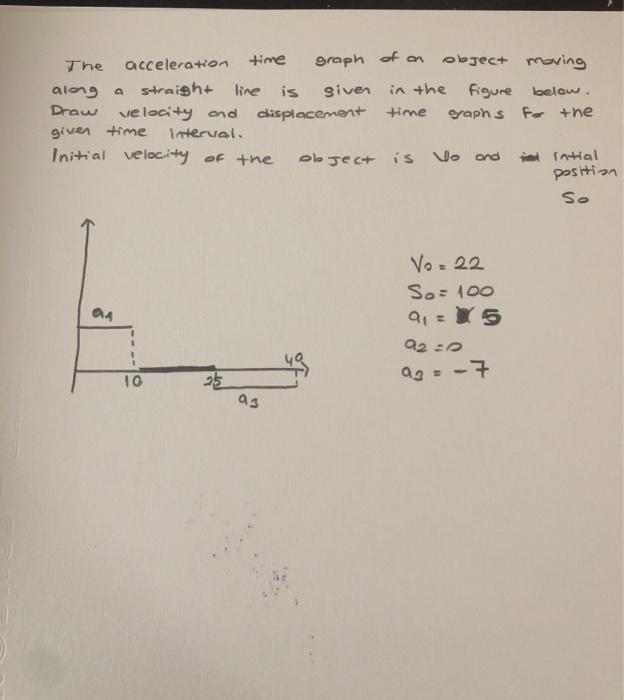 The acceleration time graph of an object moving
along a straight line is given in the figure below.
Draw velocity and displacement time graphs for the
given time interval.
Initial velocity of the object is Vo and intial
position
So
Vo = 22
So = 100
a1 = 5
a2 = 0
a3 = -7
a1
10
25
40
a3